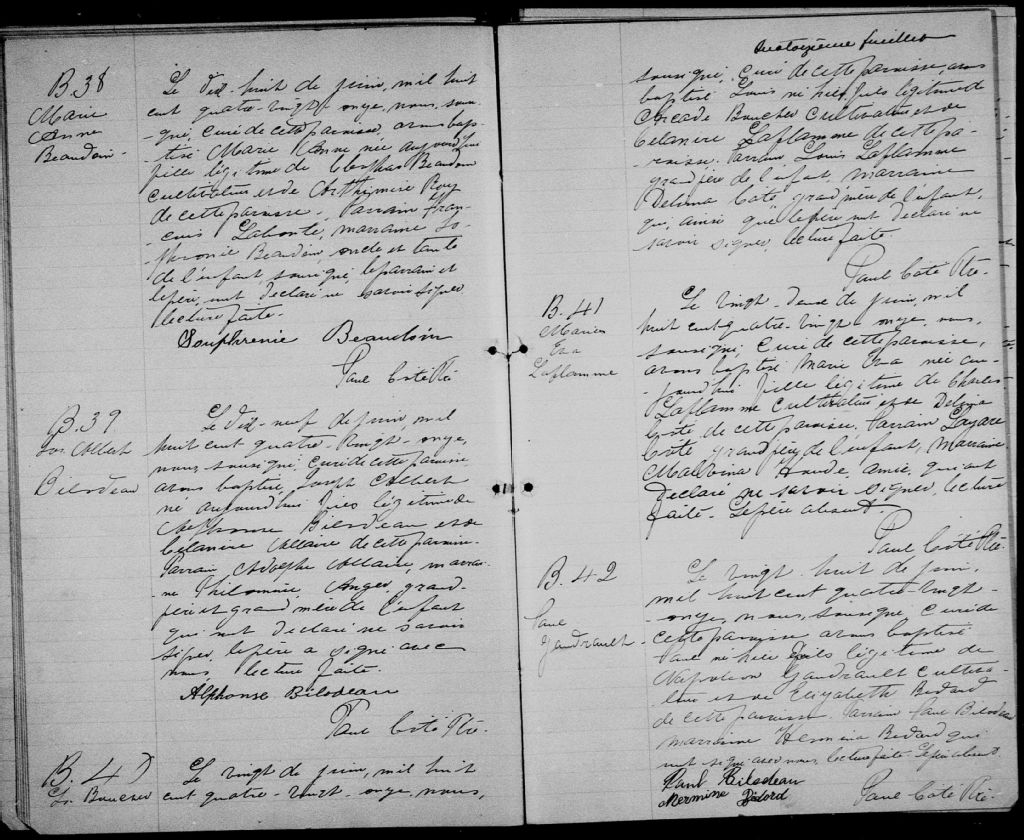 B.38
Marie
Anne
Beaudoin-
Le dix-huit de juin, mil huit
cent quatre-vingt onze, nous, sous-
-igné, curé de cette paroisse, avons bap-
-tisé Marie Anne née aujourd'hui
fille légitime de Beaudoin
cultivateur et de Roy
de cette paroisse. Parrain Fran-
-cois Labonté, marraine So-
-phronie Beaudoin oncle et tante
de l'enfant, soussigné, le parrain et
le père, ont déclaré ne savoir signer
lecture faite.
Souphrenie Beaudoin
Paul Coté Ptre
B.39
Jos. Albert
Bilodeau
Le dix-neuf de juin, mil
huit cent quatre-vingt-onze,
nous, sousigné, curé de cette paroisse
avons baptisé, Joseph Albert
né aujourd'hui fils légitime de
Alphonse Bilodeau et de
Célanire Allaire de cette paroisse.
Parrain Adolphe Allaire, marrai-
ne Philomène Angers, grand-
père et grand mère de l'enfant
qui ont déclaré ne savoir
signer, le père a signé avec
nous, lecture faite.
Alphonse Bilodeau
Paul Coté Ptre.
B. 40
Ls. Boucher
Le vingt de juin, mil huit
cent quatre-vingt-onze, nous,
Quatorzième feuillet
sousigné, curé de cette paroisse, avons
baptisé Louis né hier fils légitime de
Arcade Boucher cultivateur et de
Célanire Laflamme de cette pa-
roisse. Parrain, Louis Laflamme
grand père de l'enfant, marraine
Delima Coté, grand mère de l'enfant,
qui, ainsi que le père ont déclaré ne
savoir signer, lecture faite.
Paul Coté Ptre.
B.41
Marie
Eva
Laflamme
Le vingt-deux de juin, mil
huit cent quatre-vingt-onze, nous,
sousigné, curé de cette paroisse,
avons baptisé Marie Eva née au-
-jourd'hui fille légitime de Charles
Laflamme cultivateur et de Delima
Coté de cette paroisse. Parrain Lazare
Coté, grand père de l'enfant, marraine
Malvina Houde, amie, qui ont
déclaré ne savoir signer, lecture
faite. Le père absent.
Paul Coté Ptre.
B.42
Paul
Gaudrault-
Le vingt-huit de juin,
mil huit cent quatre-vingt
-onze, nous, sousigné curé de
cette paroisse avons baptisé
Paul né hier fils légitime de
Napoléon Gaudrault cultiva-
teur et de Elizabeth Bédard
de cette paroisse. Parrain Paul Bilodeau
marraine Bédard qui
ont signé avec nous, lecture faite. Le père absent
Paul Bilodeau
Hermine Bédard
Paul Coté Ptre.